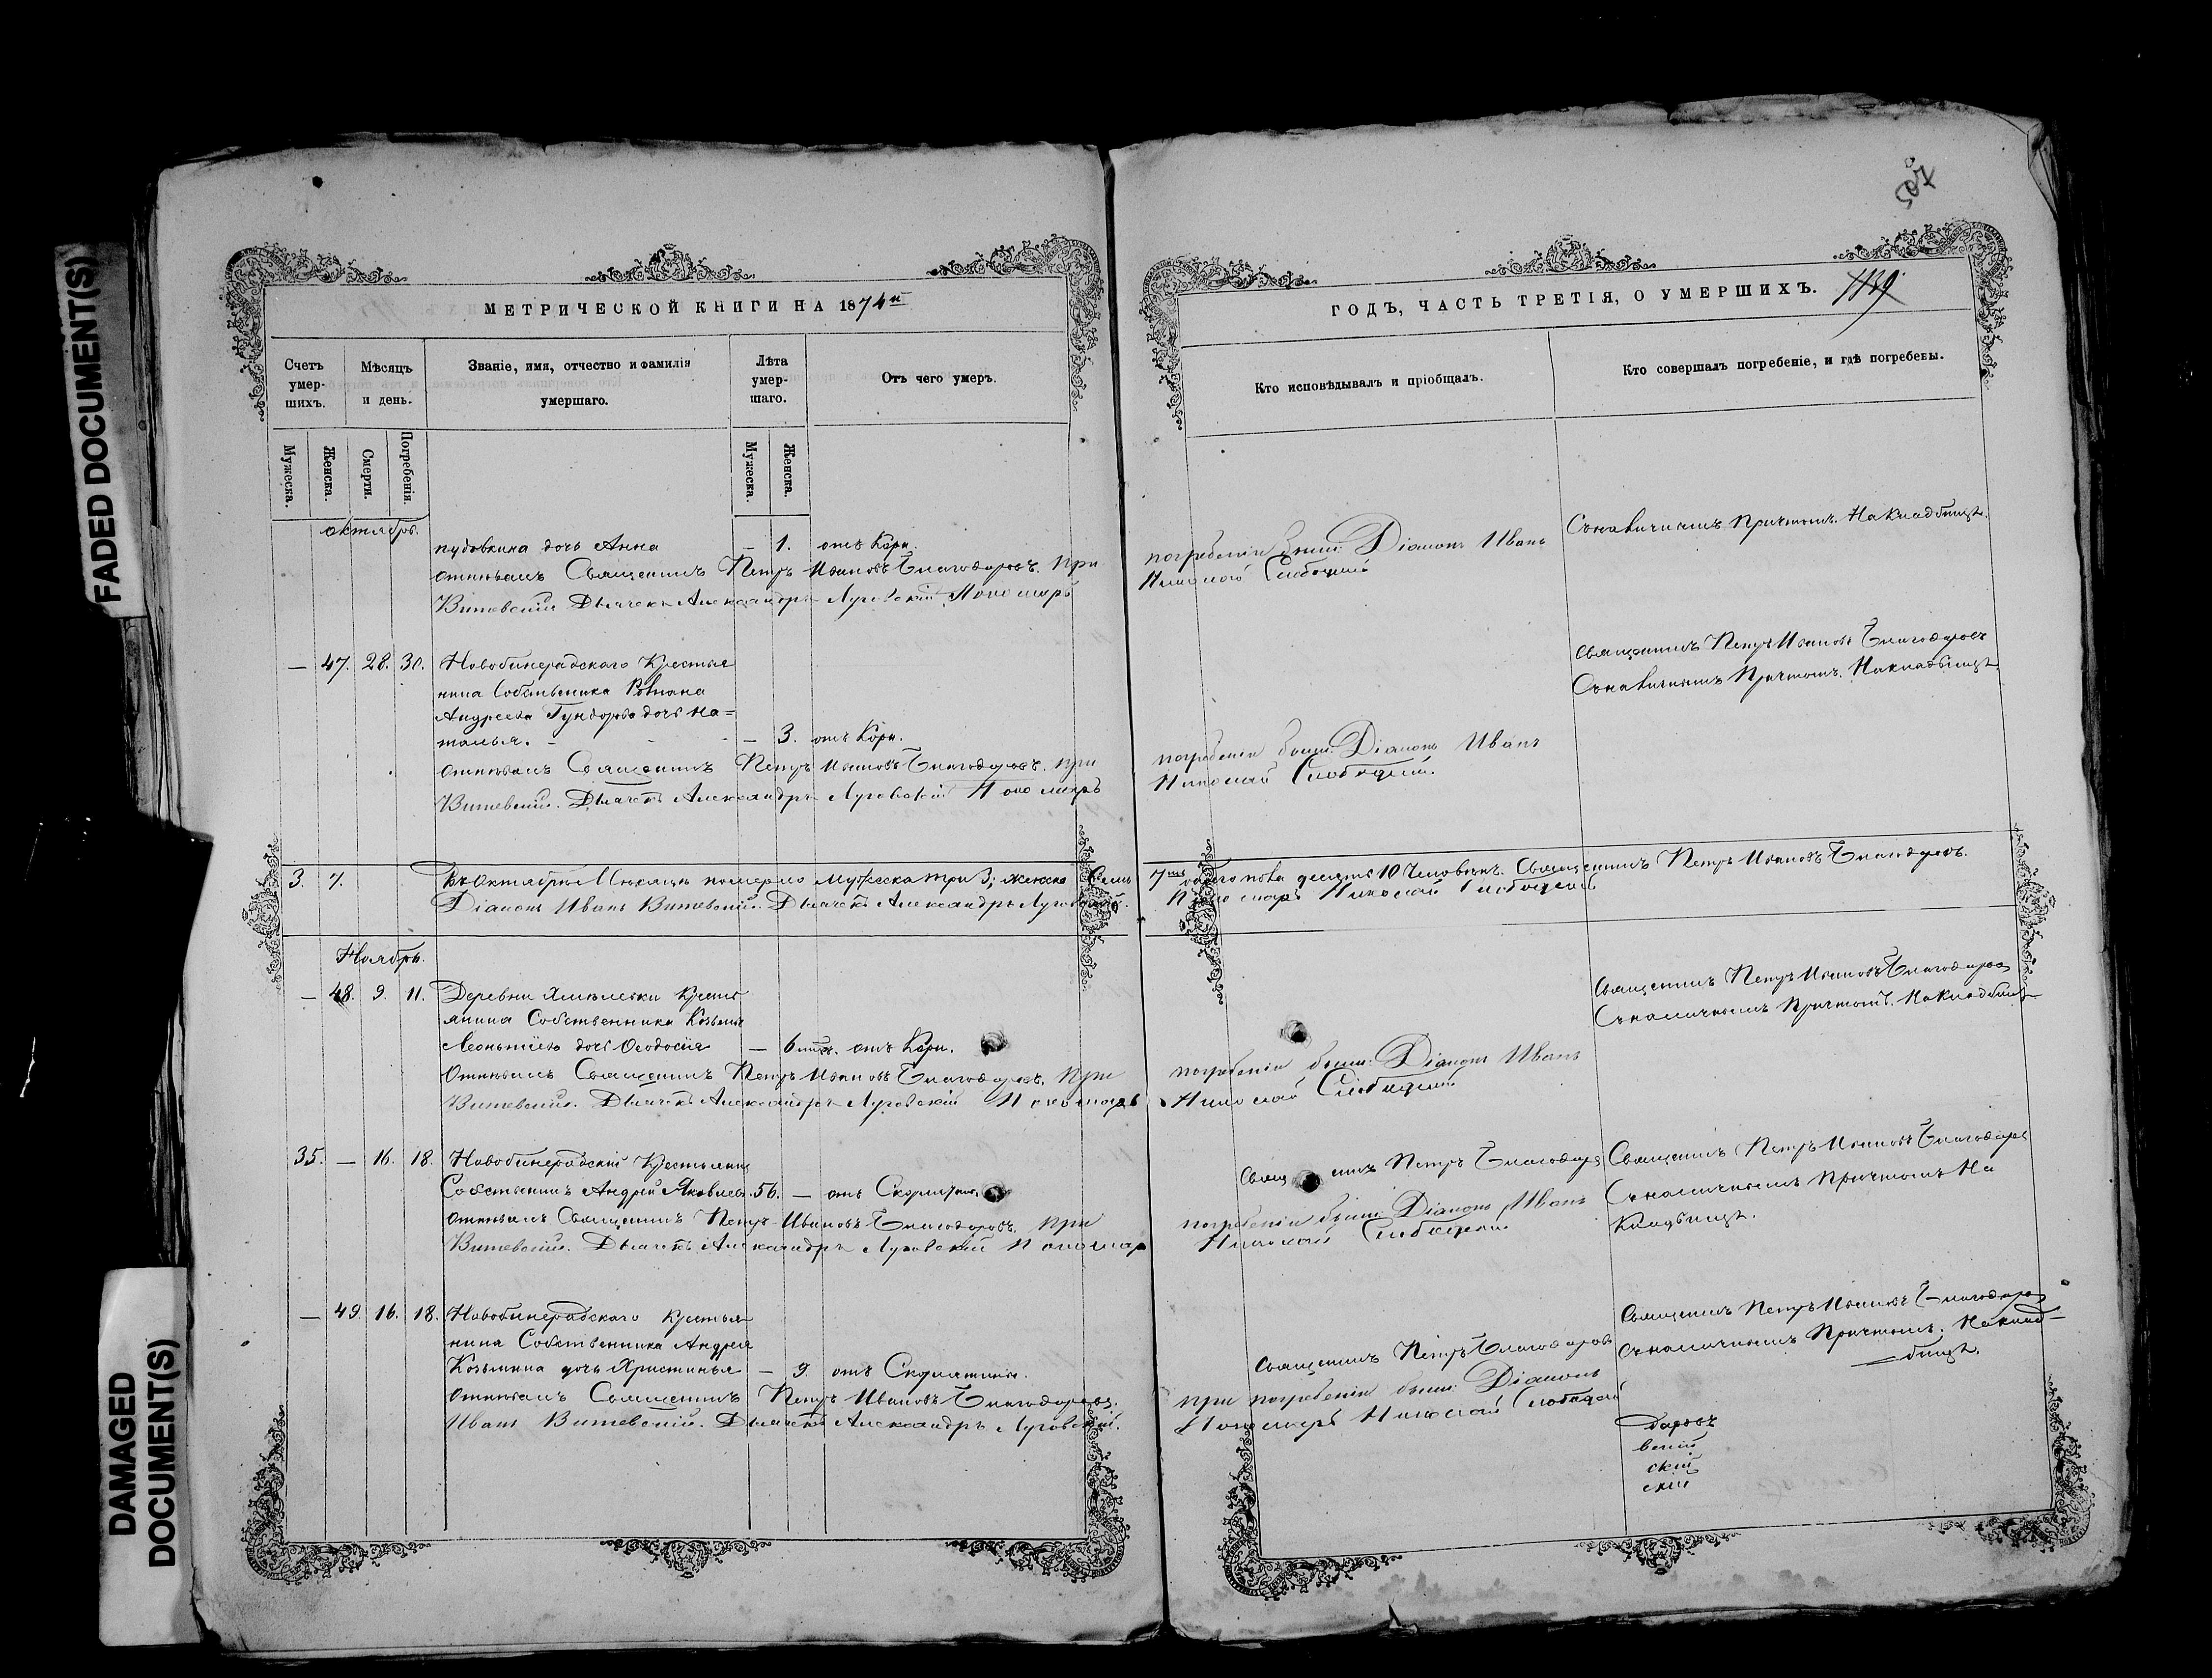 FADED DOCUMENT(S)
DAMAGED
DOCUMENT(S)
МЕТРИЧЕСКОЙ КНИГИ НА 1874й
Счетъ умер-шихъ.
Мѣсяцъ и день.
Званіе, имя, отчество и фамилія умершаго.
Лѣта умер-шаго.
Отъ чего умеръ.
Мужеска.
Женска.
Смерти.
Погребенія.
Мужеска.
Женска.
октябрь.
дочь Анна — 1. отъ Кори.
Отпѣвалъ Священникъ Петръ Ивановъ Благодаровъ. при
Витевскій. Дьячекъ Александръ Луговскій Пономарь
— 47. 28. 30. Новобинерадскаго Крестья
нина Собственника Романа
Андреева дочь На=
талья. — 3. отъ Кори.
Отпѣвалъ Священникъ Петръ Ивановъ Благодаровъ. при
Витевскій. Дьячекъ Александръ Луговскій Пономарь
3. 7. Въ Октябрѣ Мѣсяцѣ померло мужеска три 3; женска Семь
Діаконъ Иванъ Витевскій. Дьячекъ Александръ Луговскій.
Ноябрь.
— 48. 9. 11. Деревни Кресть
янина Собственника Козьмы
Леонтьева дочь Ѳеодосія — 6 отъ Кори.
Отпѣвалъ Священникъ Петръ Ивановъ Благодаровъ. при
Витевскій. Дьячекъ Александръ Луговскій Пономарь
35. — 16. 18. Новобинерадскій Крестьянинъ
Собственникъ Андрей Яковлевъ 56. — отъ
Отпѣвалъ Священникъ Петръ Ивановъ Благодаровъ. при
Витевскій. Дьячекъ Александръ Луговскій Пономарь
— 49. 16. 18. Новобинерадскаго Крестья
нина Собственника Андрея
Козьмина дочь Христинья — 9. отъ Скорлатины.
Отпѣвалъ Священникъ Петръ Ивановъ Благодаровъ.
Иванъ Витевскій. Дьячекъ Александръ Луговскій.
ГОДЪ, ЧАСТЬ ТРЕТІЯ, О УМЕРШИХЪ.
Кто исповѣдывалъ и пріобщалъ.
Кто совершалъ погребеніе, и гдѣ погребены.
Съ наличнымъ Причтомъ. На Кладбищѣ.
погребеніи были: Діаконъ Иванъ
Николай Слободскій
Священникъ Петръ Ивановъ Благодаровъ
Съ наличнымъ Причтомъ. На кладбищѣ
погребеніи были: Діаконъ Иванъ
Николай Слободскій.
7 обоего пола десять 10 Человѣкъ. Священникъ Петръ Ивановъ Благодаровъ.
Пономарь Николай Слободской
Священникъ Петръ Ивановъ Благодаровъ
Съ наличнымъ Причтомъ. На Кладбищѣ
погребеніи были: Діаконъ Иванъ
Николай Слободскій
Священникъ Петръ Благодаровъ
Священникъ Петръ Ивановъ Благодаровъ
Съ наличнымъ Причтомъ На
Кладбищѣ.
погребеніи были: Діаконъ Иванъ
Николай Слободскій
Священникъ Петръ Ивановъ Благодаровъ
Съ наличнымъ Причтомъ. На клад-
бищѣ.
Священникъ Петръ Благодаровъ
при погребеніи были: Діаконъ
Пономарь Николай Слободской
даровъ
вскій
скій
скій